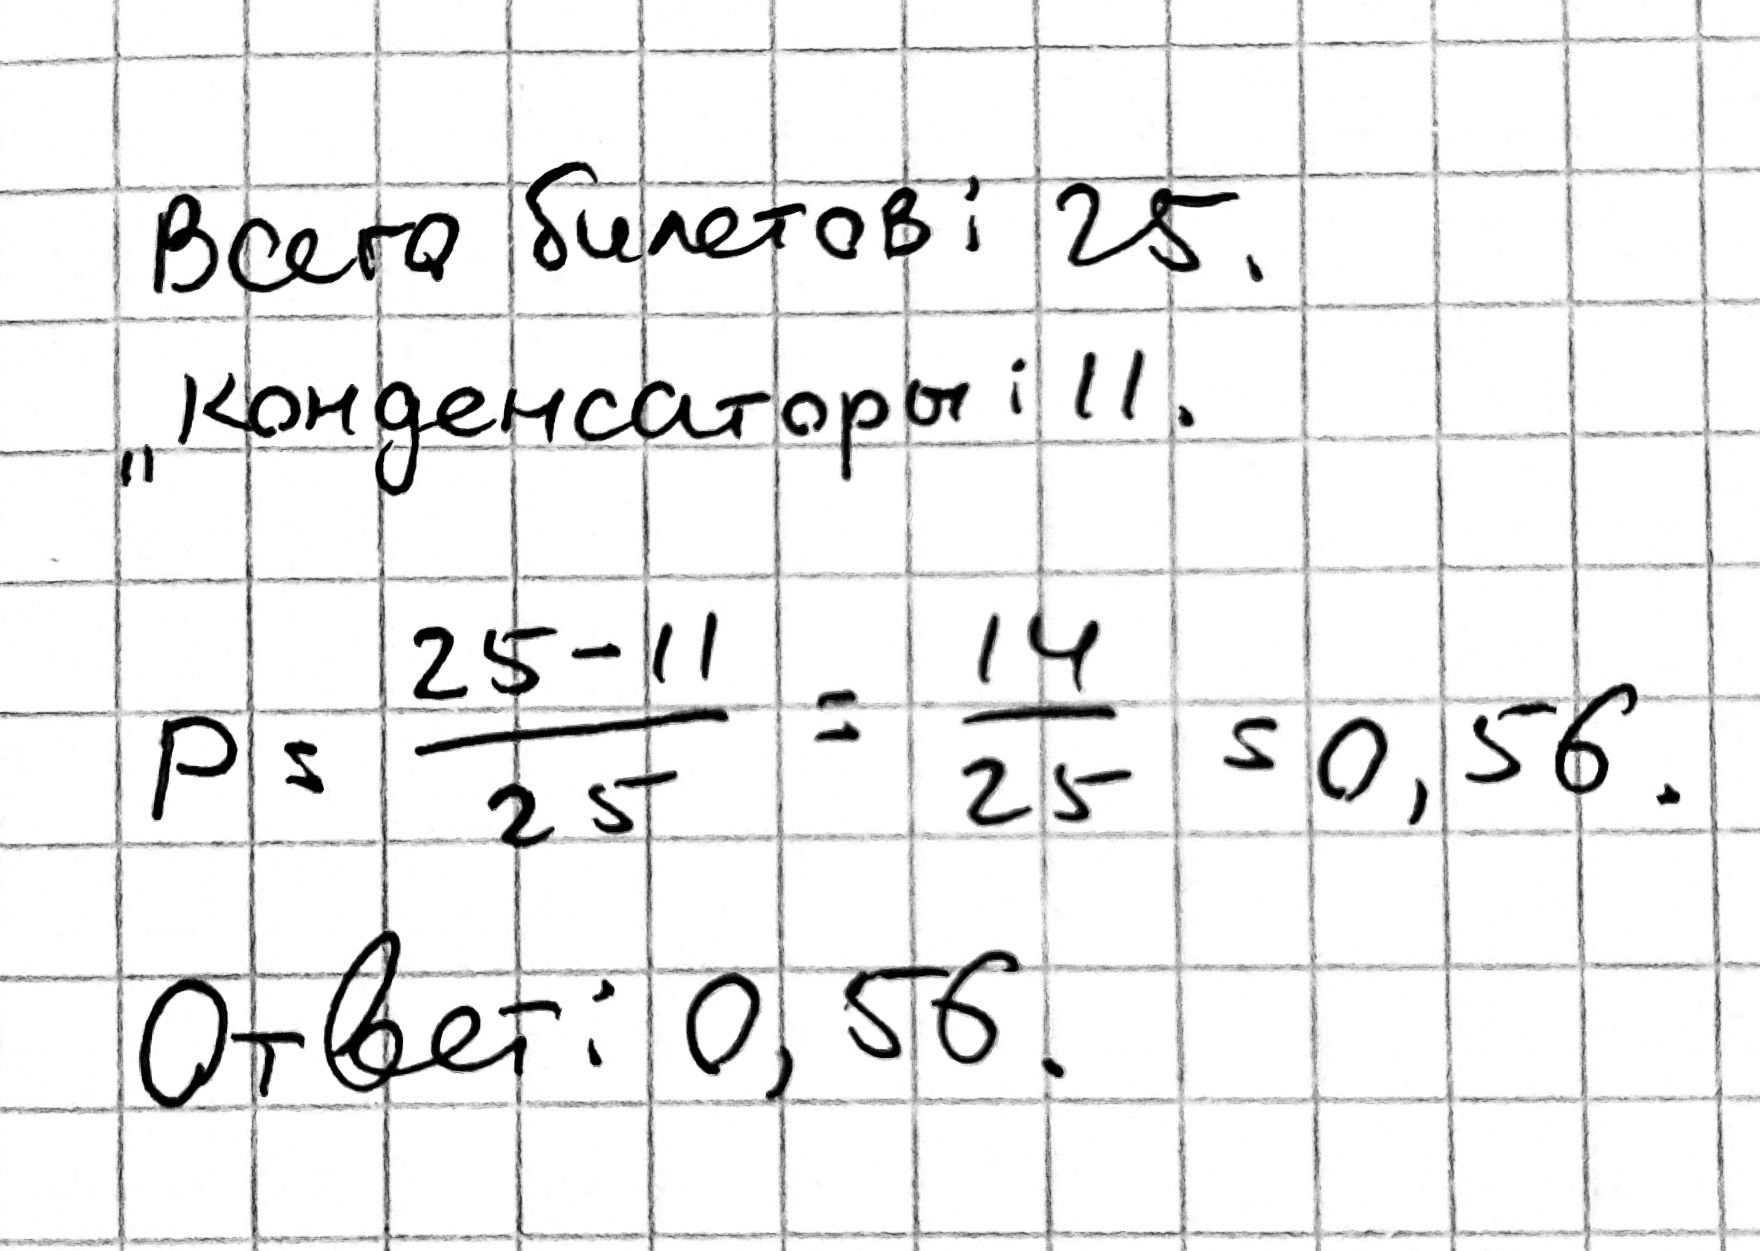 Всего билетов: 25.
„Конденсаторы: 11.
P = 25-11 / 25 = 14 / 25 = 0,56.
Ответ: 0,56.